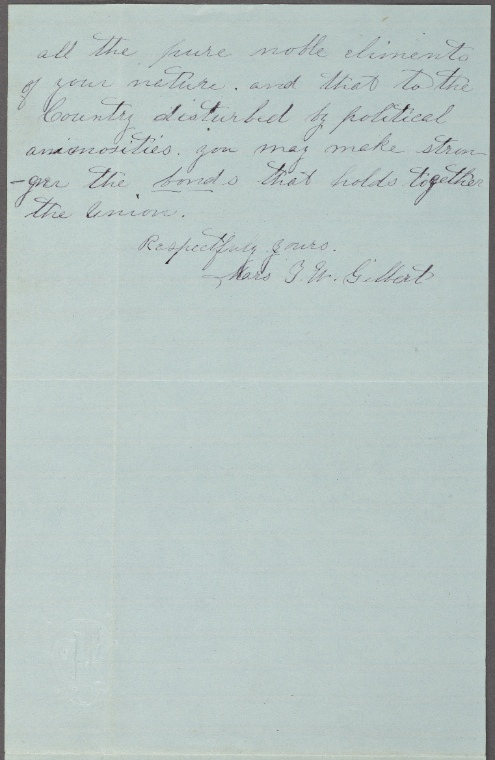 all the pure noble eliments
of your nature. and that to the
Country disturbed by political
animosities. you may make stron-
-ger the bonds that holds together
the Union.
Respectfully yours.
Mrs T. W. Gilbert